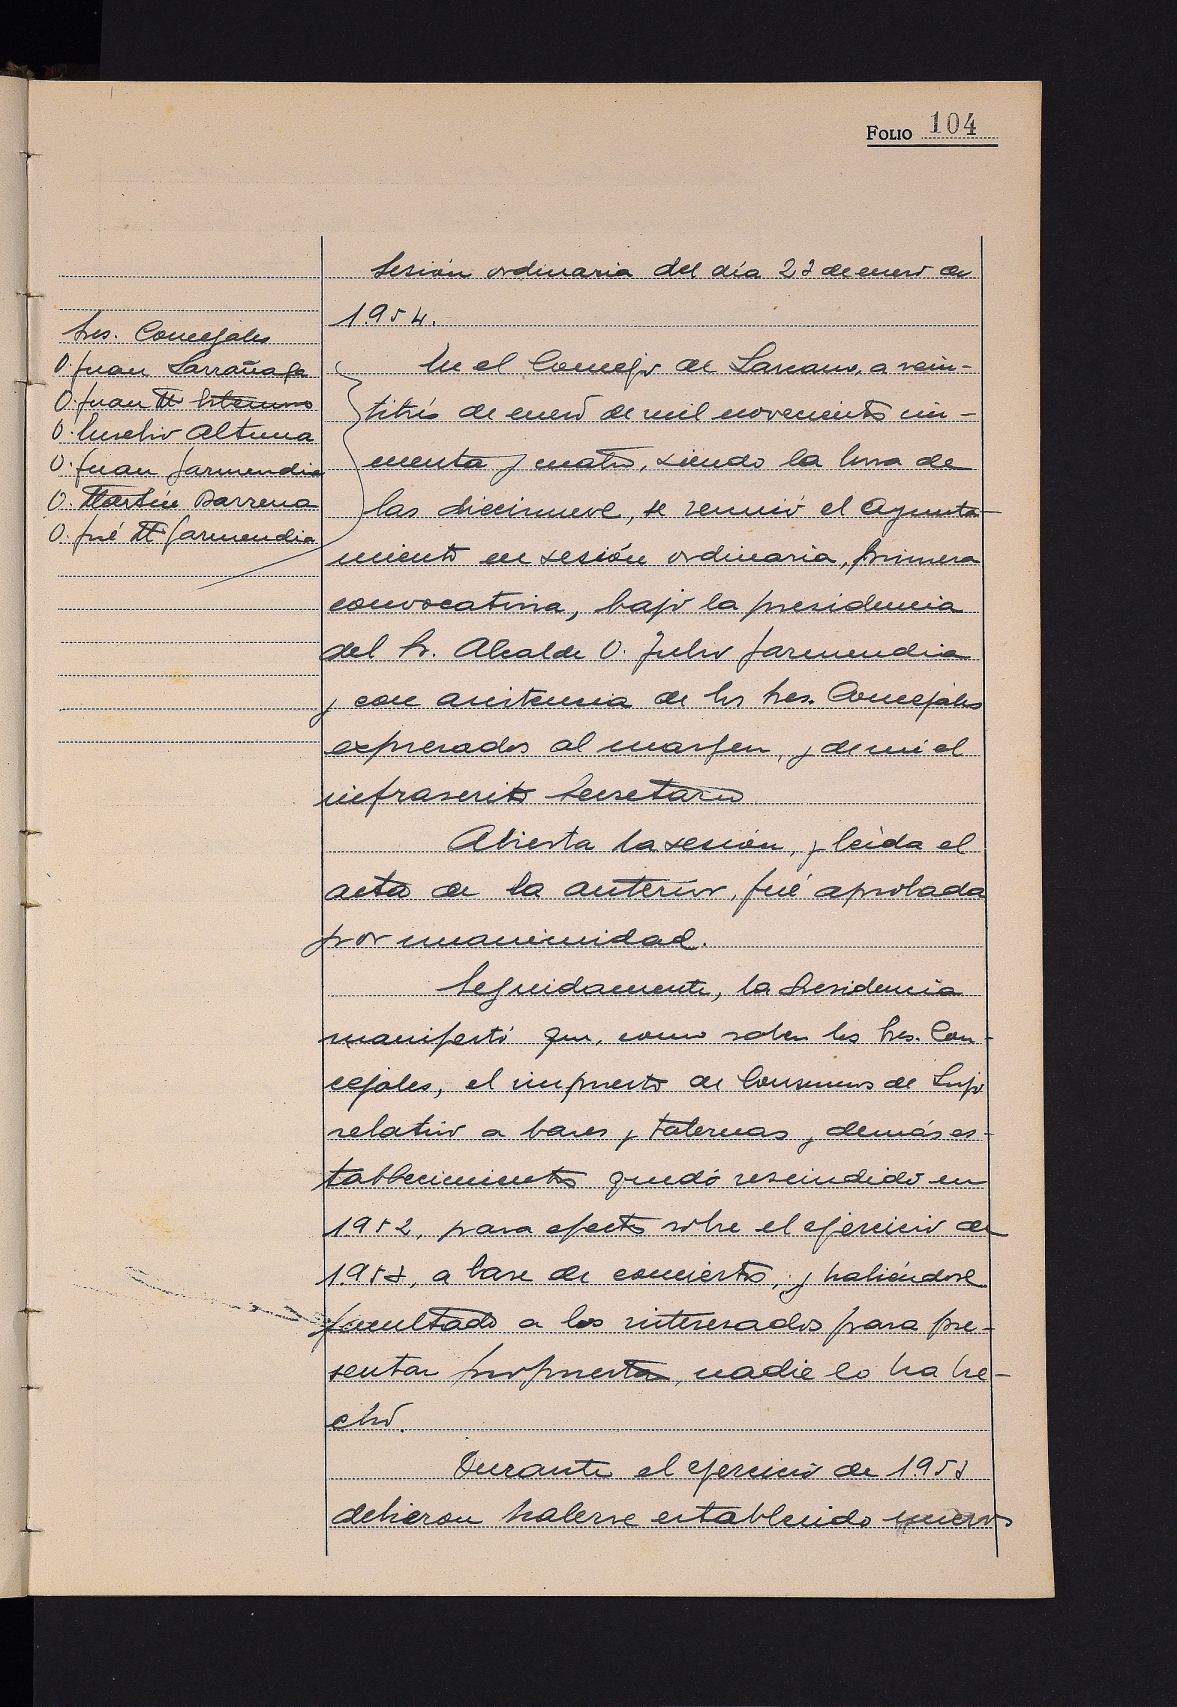 FOLIO 104
Sesión ordinaria del día 23 de enero de
1.954.
Sres. Concejales
D. Juan Larrañaga
D. Juan Mª
D. Eusebio Altuna
D. Juan Garmendia
D. Martín Barrena
D. José Mª Garmendia
En el Concejo de Lazcano, a vein-
titrés de enero de mil novecientos cin-
cuenta y cuatro, siendo la hora de
las diecinueve, se reunió el Ayunta-
miento en sesión ordinaria, primera
convocatoria, bajo la presidencia
del Sr. Alcalde D. Julio Garmendia
y con asistencia de los Sres. Concejales
expresados al margen, y de mi el
infrascrito Secretario
Abierta la sesión, y leída el
acta de la anterior, fué aprobada
por unanimidad.
Seguidamente, la Presidencia
manifestó que, como saben los Sres. Con-
cejales, el impuesto de Consumos de Lujo
relativo a bares y tabernas y demás es-
tablecimientos quedó rescindido en
1.952, para efectos sobre el ejercicio de
1.953, a base de concierto, y habiéndose
facultado a los interesados para pre-
sentar propuesta, nadie lo ha he-
cho.
Durante el ejercicio de 1.953
debieron haberse establecido nuevos